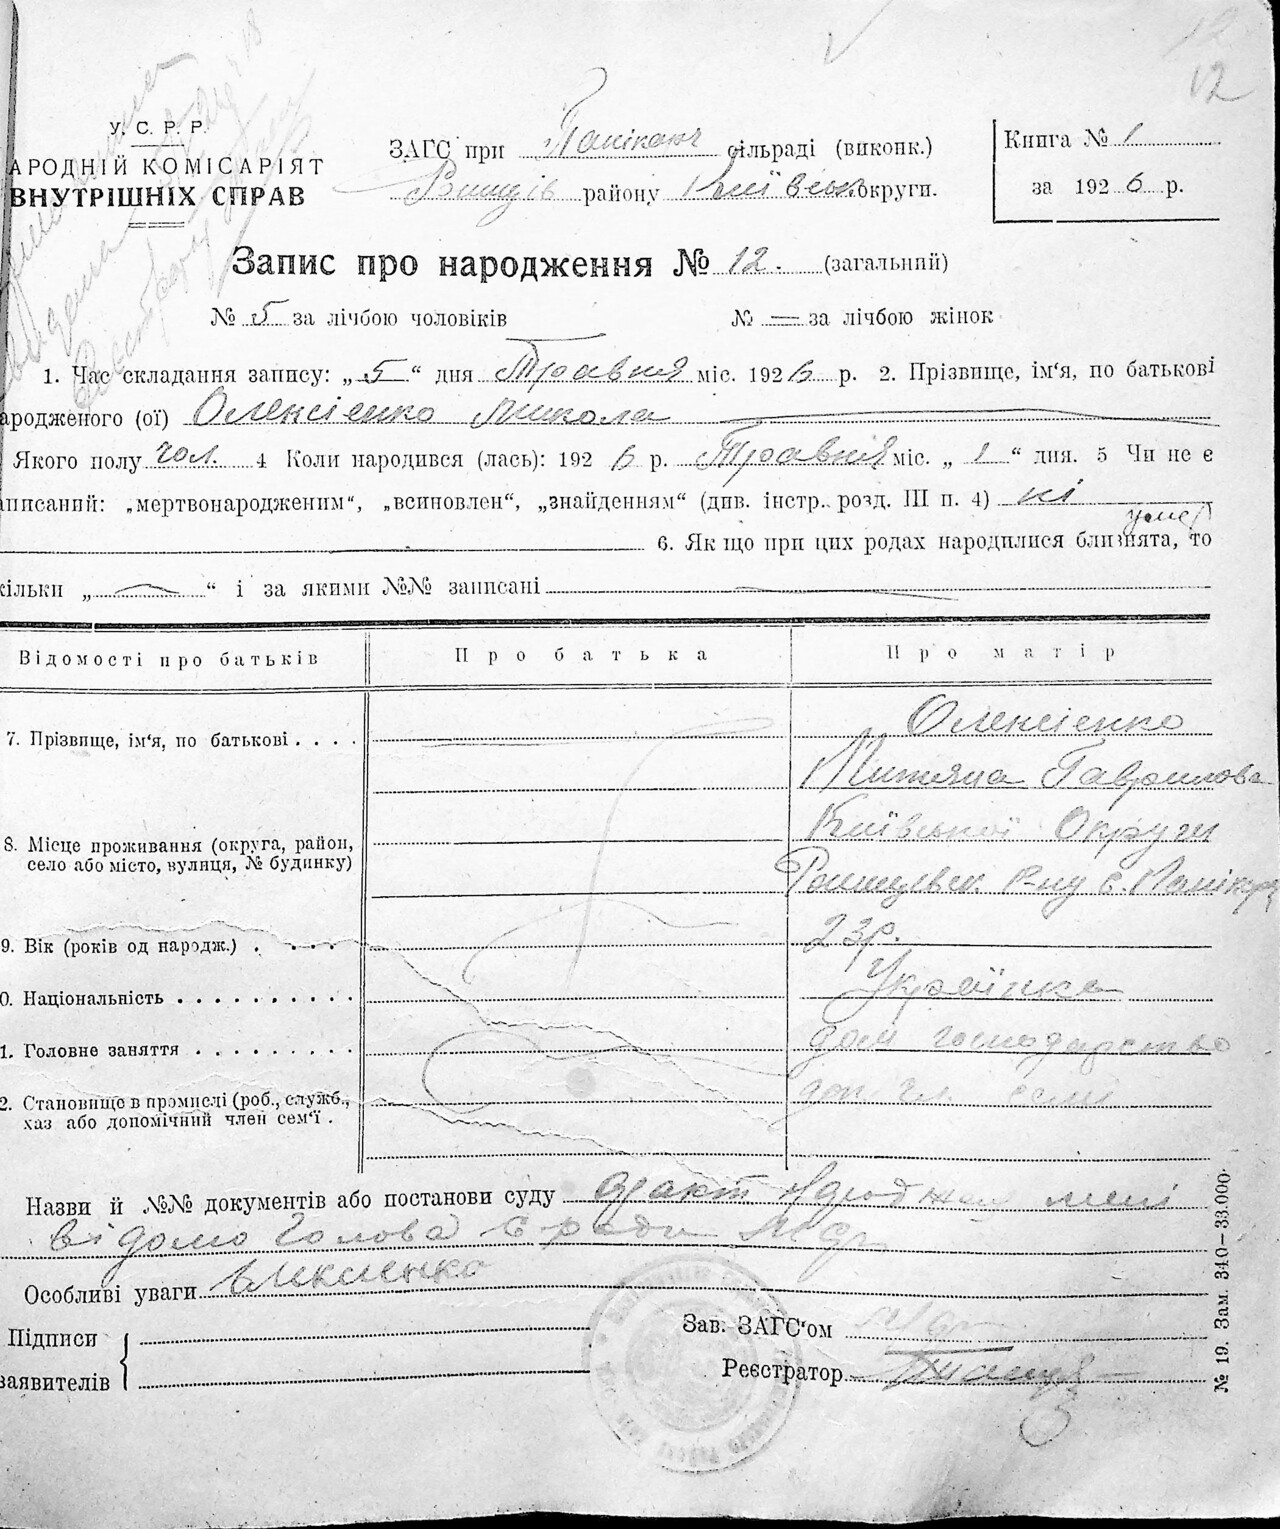 12
12
У. С. Р. Р.
АРОДНІЙ КОМІСАРІЯТ
ВНУТРІШНІХ СПРАВ
ЗАГС при Панікарч сільраді (виконк.)
району Київськ округи.
Книга № 1
за 1926 р.
Запис про народження № 12. (загальний)
№ 5 за лічбою чоловіків № — за лічбою жінок
1. Час складання запису: „5“ дня Травня міс. 1926 р. 2. Прізвище, ім'я, по батькові
ародженого (ої) Олексієнко Микола
Якого полу чол. 4 Коли народився (лась): 1926 р. Травня міс. „1“ дня. 5 Чи не є
аписаний: „мертвонародженим“, „всиновлен“, „знайденням“ (див. інстр.. розд. III п. 4) ні
умер
6. Як що при цих родах народилися близнята, то
кільки „ “ і за якими №№ записані
Відомості про батьків Про батька Про матір
7. Прізвище, ім'я, по батькові . . . . Олексієнко
Гаврилова
8. Місце проживання (округа, район, Київської Округи
село або місто, вулиця, № будинку) Р-ну с. Панікарч
9. Вік (років од народж.) . . . . 23р.
0. Національність . . . . . . . . . . Українка
1. Головне заняття . . . . . . . . . дом господарство
2. Становище в промислі (роб., службв., доп. чл. семі
хаз або допомічний член сем'ї .
Назви й №№ документів або постанови суду факт мені
відомо Голова С ради
Особливі уваги
Підписи
заявителів
Зав. ЗАГС'ом
Реєстратор
№ 19. Зам. 340—33.000.